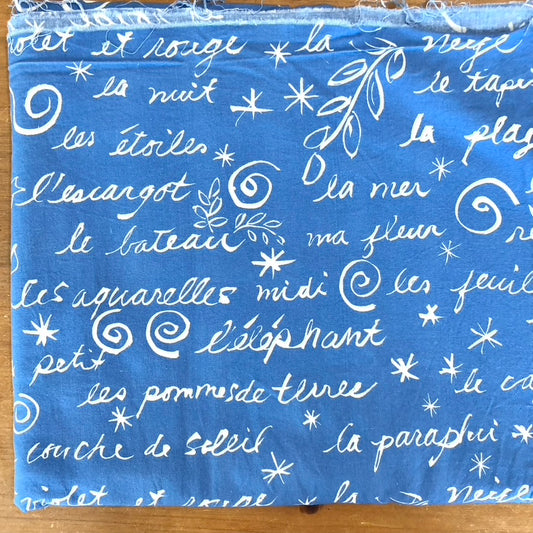 violet et rouge la neige
la nuit le tapis
les étoiles la plag
l'escargot la mer
le bateau ma fleur
les aquarelles midi les feuil
l'éléphant
petit
les pommes de terre le ca
couche de soleil la paraplui
violet et rouge la neige